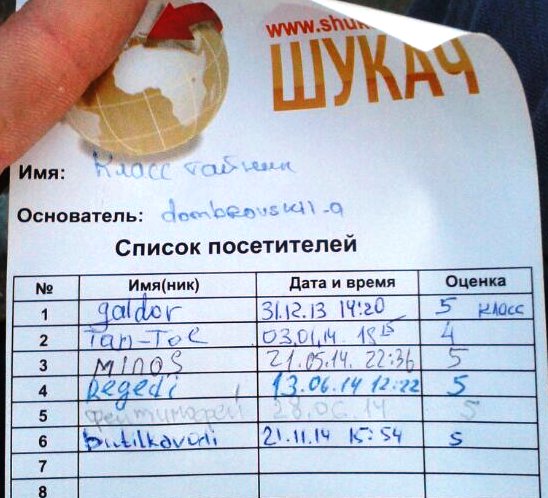 www.shuk
ШУКАЧ
Имя: Класс тайник
Основатель: dombrovskii-a
Список посетителей
№ Имя(ник) Дата и время Оценка
1 galdor 31.12.13 14:20 5 класс
2 Tan-Tol 03.01.14 18 15 4
3 MINOS 21.05.14. 22:36 5
4 Degedi 13.06.14 12:22 5
5 28.06.14 5
6 butilkavudi 21.11.14 15:54 5
7
8